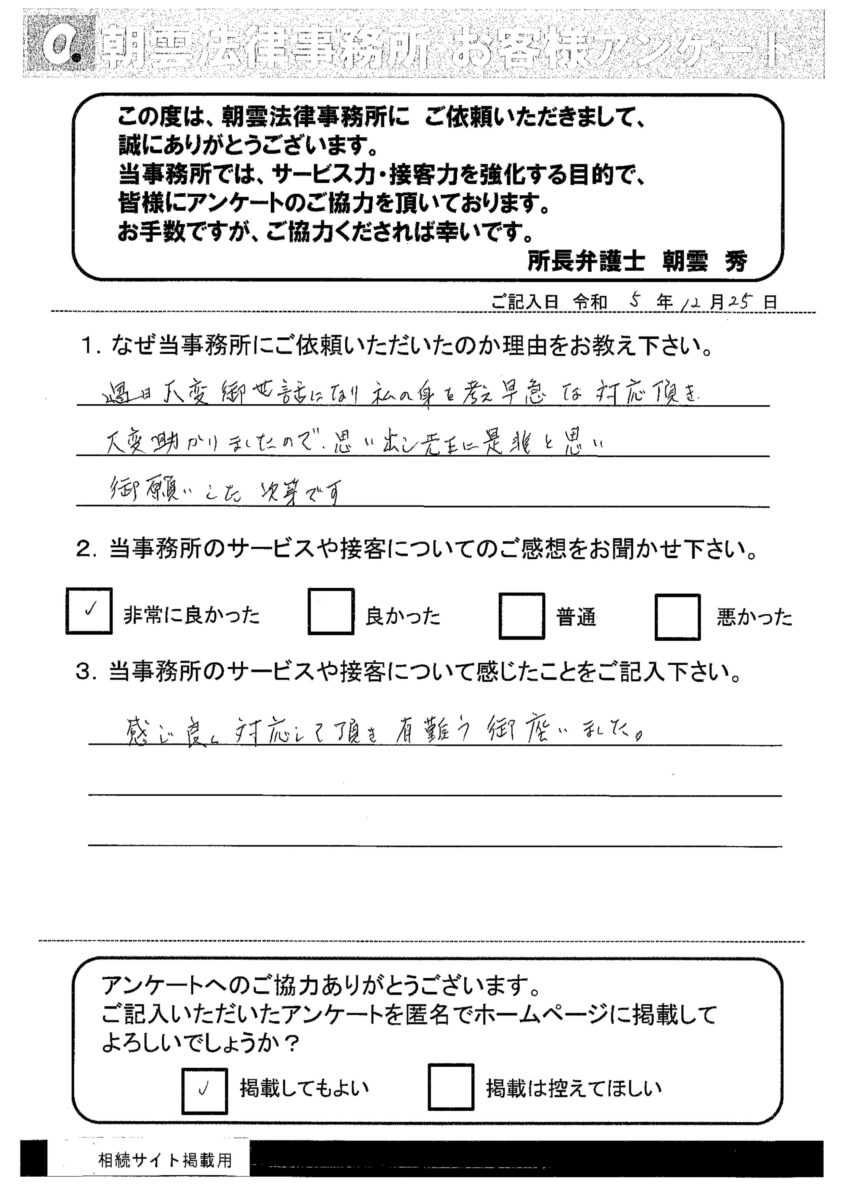 a. 朝雲法律事務所 お客様アンケート
この度は、朝雲法律事務所に ご依頼いただきまして、
誠にありがとうございます。
当事務所では、サービス力・接客力を強化する目的で、
皆様にアンケートのご協力を頂いております。
お手数ですが、ご協力くだされば幸いです。
所長弁護士 朝雲 秀
ご記入日 令和 5 年 12 月 25 日
1. なぜ当事務所にご依頼いただいたのか理由をお教え下さい。
過日大変御世話になり私の身を考え早急な対応頂き
大変助かりましたので、思い出し先生に是非と思い
御願いした次第です
2. 当事務所のサービスや接客についてのご感想をお聞かせ下さい。
✓ 非常に良かった 良かった 普通 悪かった
3. 当事務所のサービスや接客について感じたことをご記入下さい。
感じ良く対応して頂き有難う御座いました。
アンケートへのご協力ありがとうございます。
ご記入いただいたアンケートを匿名でホームページに掲載して
よろしいでしょうか?
✓ 掲載してもよい 掲載は控えてほしい
相続サイト掲載用